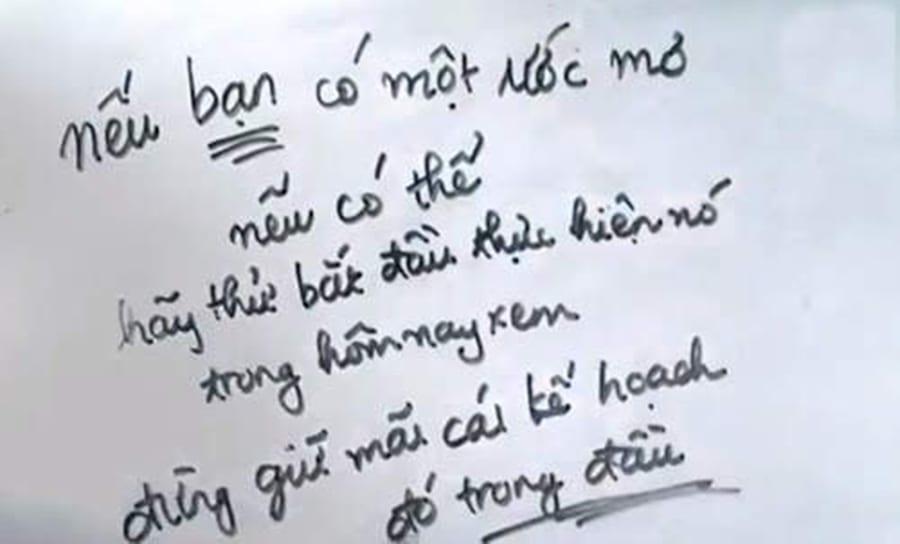 nếu bạn có một ước mơ
nếu có thể
hãy thử bắt đầu thực hiện nó
trong hôm nay xem
đừng giữ mãi cái kế hoạch
đó trong đầu